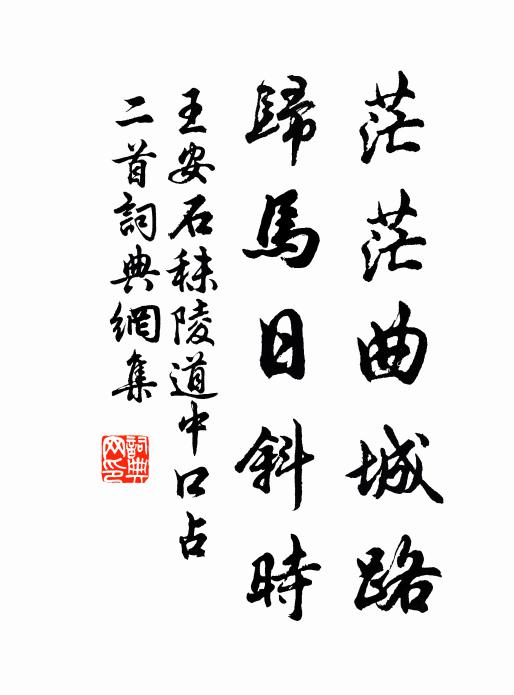 茫茫曲城路
歸馬日斜時
王安石秣陵道中口占
二首詞典網集
詞典網印